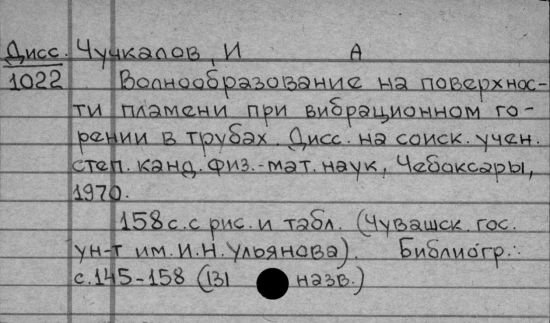 Дисс. Чучкалов, И А
1022 Волнообразование на поверхнос-
ти пламени при вибрационном го-
рении в трубах. Дисс. на соиск. учен.
степ. канд. физ.-мат. наук, Чебоксары,
1970.
158 с. с рис. и табл. (Чувашск. гос.
ун-т им. И.Н. Ульянова). Библиогр.:
с. 145-158 (131 назв.)